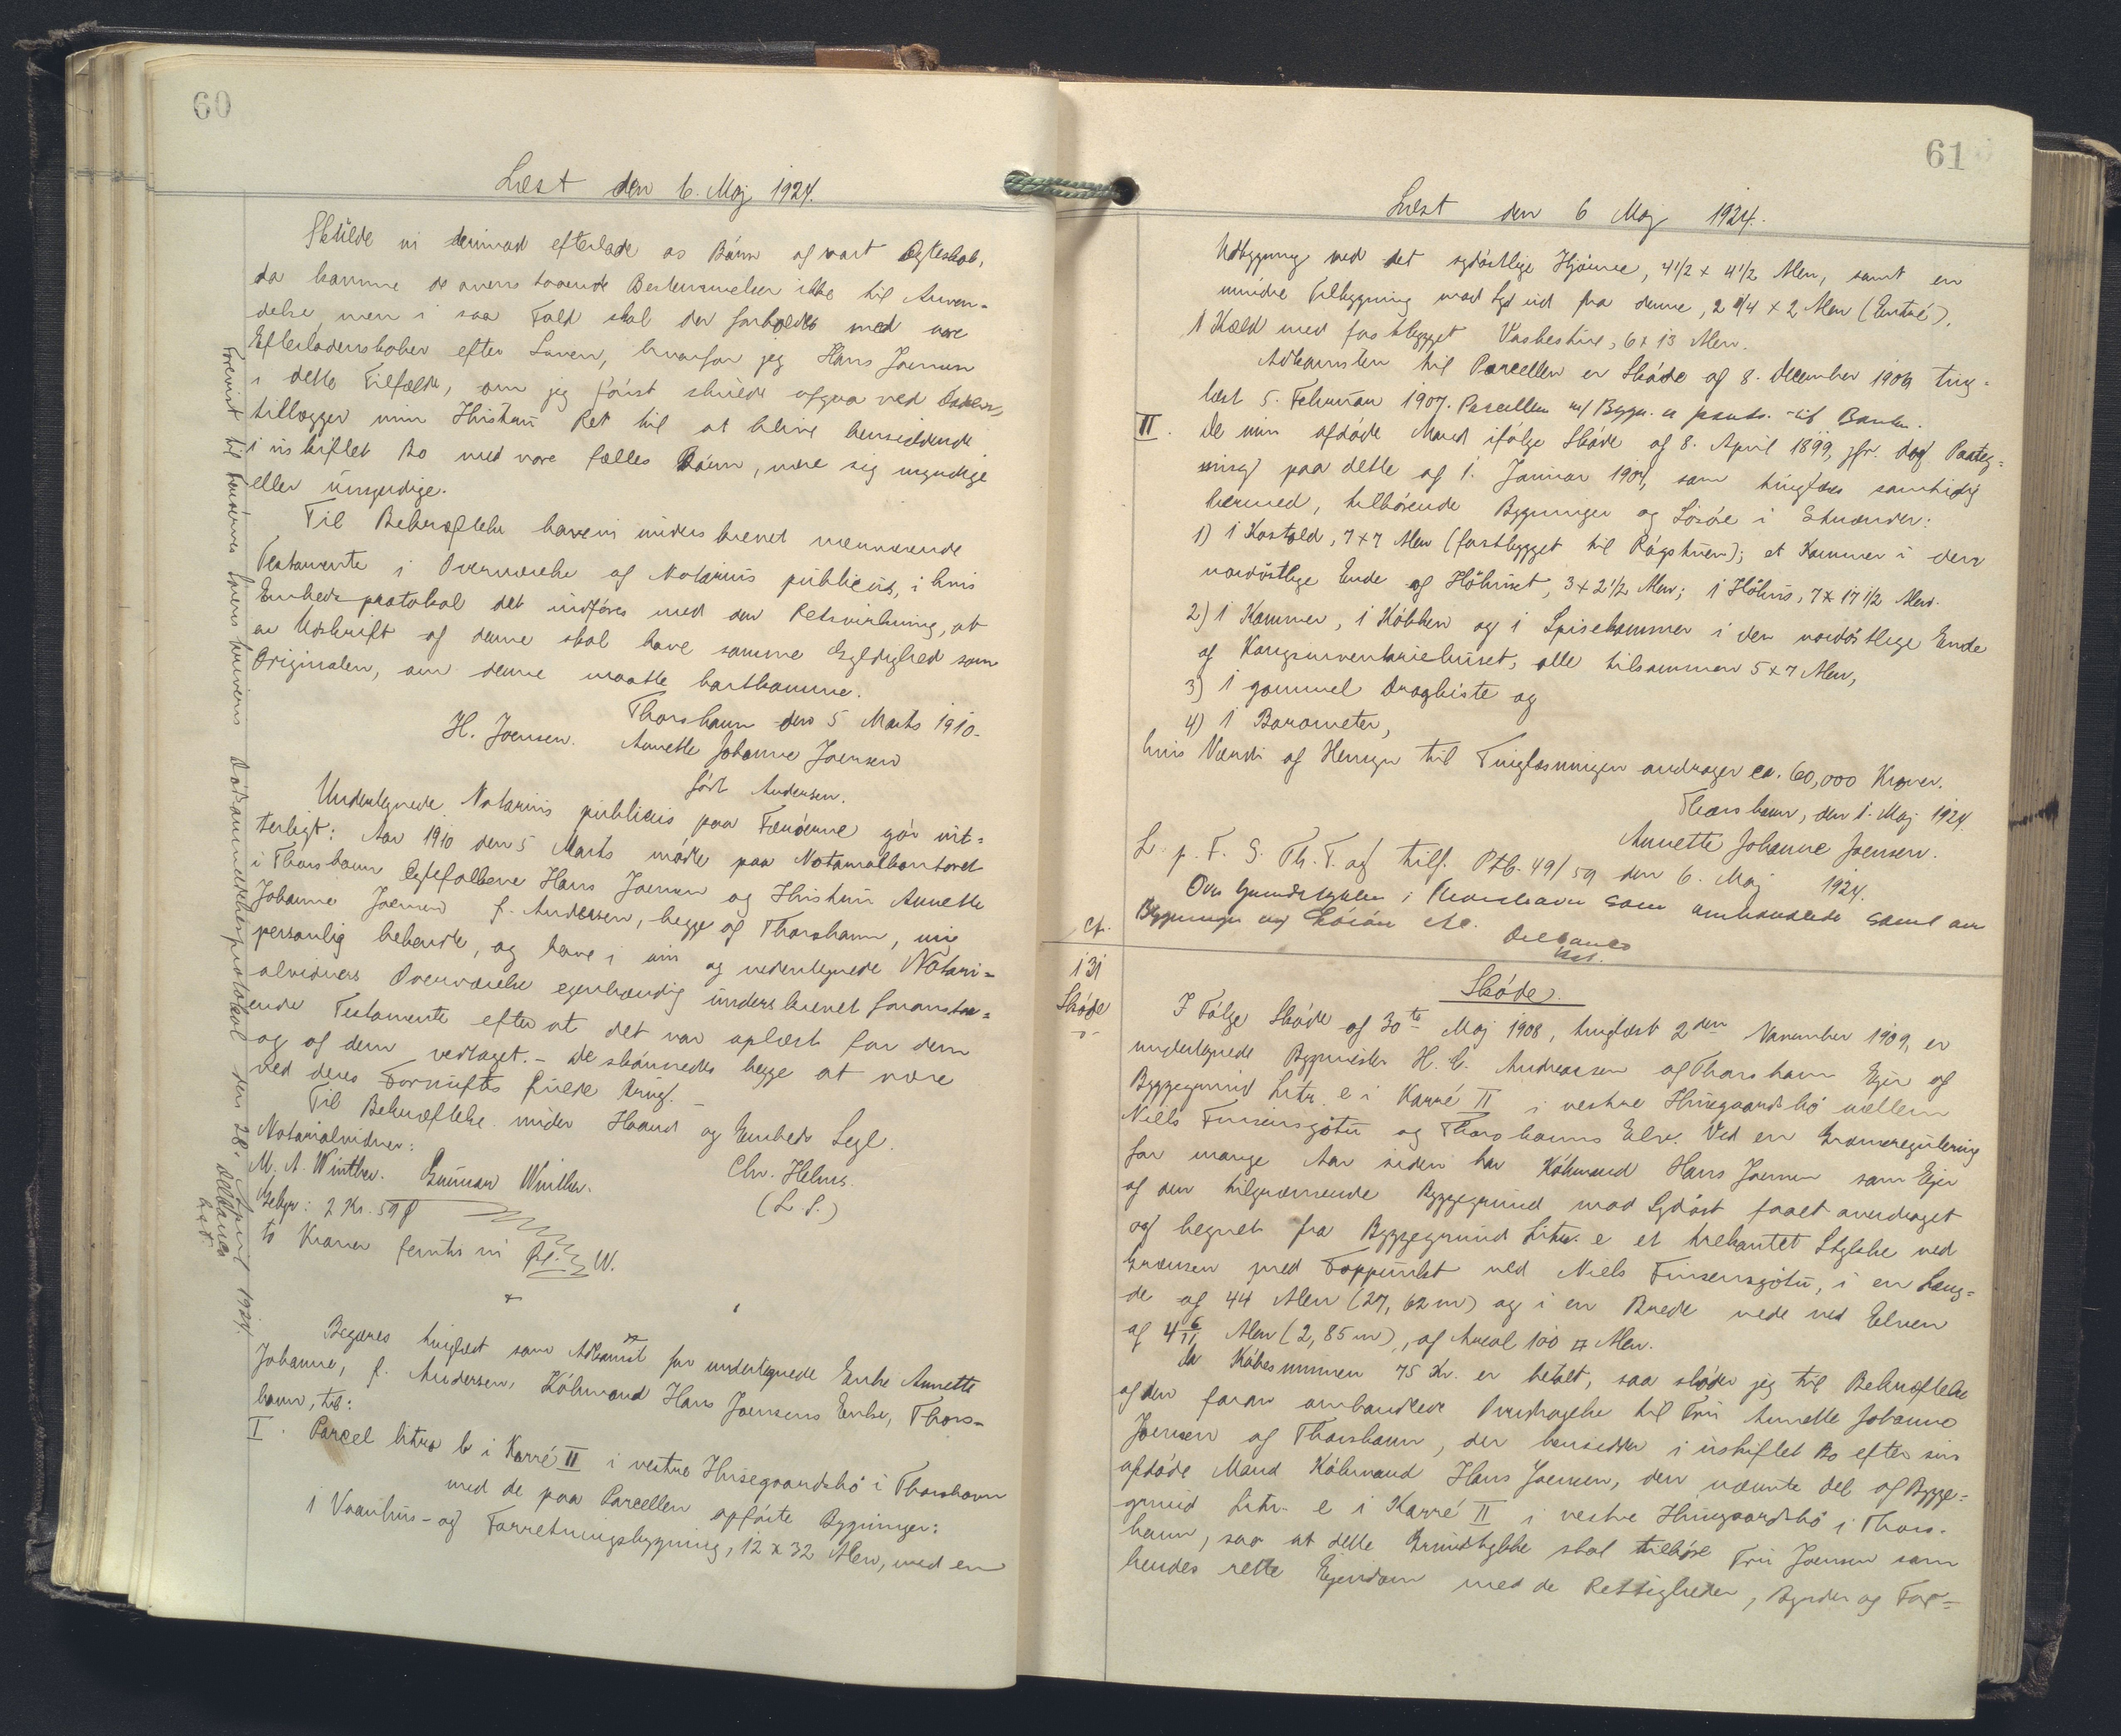 60
Læst den 6. Maj 1924.
Skulde vi derimod efterlade os Børn af vort Ægteskab,
da komme de ovenstaaende Bestemmelser ikke til Anven-
delse, men i saa Fald skal der forholdes med vore
Efterladenskaber efter Loven, hvorfor jeg Hans Joensen
i dette Tilfælde, om jeg først skulde afgaa ved Døden,
tillægger min Hustru Ret til at blive hensiddende
i uskiftet Bo med vore fælles Børn, være sig myndige
eller umyndige.
Til Bekræftelse have vi underskrevet nærværende
Testamente i Overværelse af Notarius publicus, i hvis
Embedsprotokol det indføres med den Retsvirkning, at
en Udskrift af denne skal have samme Gyldighed som
Originalen, om denne maatte bortkomme.
Thorshavn den 5 Marts 1910.
H. Joensen. Annette Johanne Joensen
født Andersen.
Undertegnede Notarius publicus paa Færøerne gør vit=
terligt: Aar 1910 den 5 Marts mødte paa Notarialkontoret
i Thorshavn Ægtefolkene Hans Joensen og Hustru Annette
Johanne Joensen f. Andersen, begge af Thorshavn, mig
personlig bekendte, og have i min og undertegnede Notari=
alvidners Overværelse egenhændig underskrevet foranstaa=
ende Testamente efter at det var oplæst for dem
og af dem vedtaget. - De skønnedes begge at være
ved deres Fornufts fulde Brug. -
Til Bekræftelse under Haand og Embeds Segl.
Notarialvidner:
M. A. Winther. Gunnar Winther. Chr. Helms.
Gebyr: 2 Kr. 59 Ø (L. S.)
to Kroner femti ni Øre. W.
Begæres tinglæst som Adkomst for undertegnede Enke Annette
Johanne, f. Andersen, Købmand Hans Joensens Enke, Thors-
havn, til:
I. Parcel litra b i Karré II i vestre Husegaardsbø i Thorshavn
med de paa Parcellen opførte Bygninger:
1 Vaanhus- og Forretningsbygning, 12 x 32 Alen, med en
Forevist til Færøernes Sorenskriveris Dødsanmeldelsesprotokol den 28. April 1924.
61
Læst den 6 Maj 1924.
Udbygning ved det sydøstlige Hjørne, 4 1/2 x 4 1/2 Alen, samt en
mindre Tilbygning mod Syd ud fra denne, 2 3/4 x 2 Alen (Entré),
1 Kæld med fastbygget Vaskeskur, 6 x 13 Alen.
Adkomsten til Parcellen er Skøde af 8. December 1906 ting=
læst 5. Februar 1907. Parcellen m/ Bygn. er pants. til Banken.
II. De min afdøde Mand ifølge Skøde af 8. April 1899, jfr. dog Paateg=
ning paa dette af 1. Januar 1901, som tinglæses samtidig
hermed, tilhørende Bygninger og Løsøre i Strænder:
1) 1 Kostald, 7 x 7 Alen (fastbygget til Røgstuen); et Kammer i den
nordøstlige Ende af Høhuset, 3 x 2 1/2 Alen; 1 Høhus, 7 x 17 1/2 Alen.
2) 1 Kammer, 1 Køkken og 1 Spisekammer i den nordøstlige Ende
af Kongsinventariehuset, alle tilsammen 5 x 7 Alen,
3) 1 gammel Dragkiste og
4) 1 Barometer,
hvis Værdi af Hensyn til Tinglæsningen andrager ca. 60,000 Kroner.
Thorshavn, den 1. Maj 1924.
Annette Johanne Joensen.
L. p. F. S. Th. T. og tilf. Ptb. 49/59 den 6. Maj 1924.
Over Grundstykker i Thorshavn som omhandlede samt om
Bygninger og Løsøre
Cf.
131
Skøde
Skøde.
I Følge Skøde af 30te Maj 1908, tinglæst 2den November 1909, er
undertegnede Bygmester H. C. Andreasen af Thorshavn Ejer af
Byggegrund Litr. e i Karré II i vestre Husegaardsbø mellem
Niels Finsensgøtu og Thorshavns Elv. Ved en Grænseregulering
for mange Aar siden har Købmand Hans Joensen som Ejer
af den tilgrænsende Byggegrund mod Sydøst faaet overdraget
og hegnet fra Byggegrund Litr. e et trekantet Stykke ved
Grænsen med Toppunkt ved Niels Finsensgøtu, i en Læng=
de af 44 Alen (27,62 m) og i en Brede nede ved Elven
af 4 6/11 Alen (2,85 m), af Areal 100 □ Alen.
Da Købesummen 75 Kr. er betalt, saa skøder jeg til Bekræftelse
af den foran omhandlede Overdragelse til Fru Annette Johanne
Joensen af Thorshavn, der hensidder i uskiftet Bo efter sin
afdøde Mand Købmand Hans Joensen, den nævnte del af Bygge=
grund Litr. e i Karré II i vestre Husegaardsbø i Thors-
havn, saa at dette Grundstykke skal tilhøre Fru Joensen som
hendes rette Ejendom med de Rettigheder, Byrder og For=